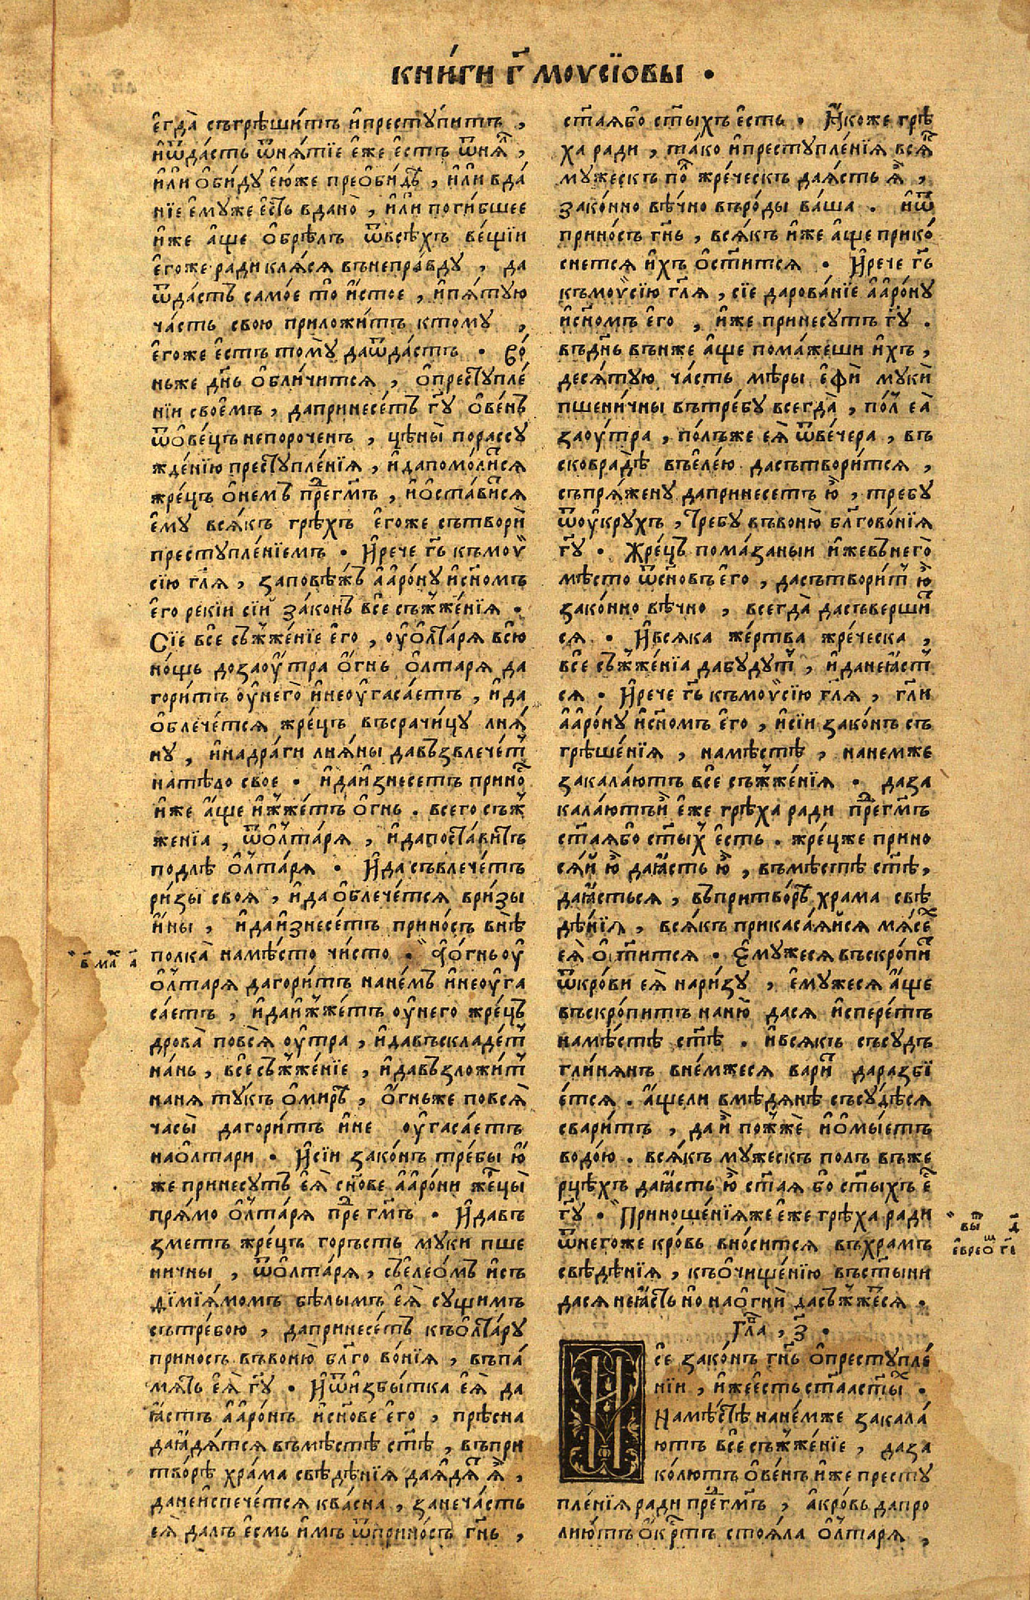 кни́ги г҃ моѵсїовы .
є҆гда̀ съгрѣши́тъ и҆престу́питъ ,
и҆ѿда́сть ѿня́тїе є҆же є҆сть ѿня́ ,
и҆лѝ о҆би́ду є҆ю́же преѻби́дѣ , и҆лѝ вда́
нїе є҆му́же є҆сть вдано̀ , и҆лѝ поги́бшее
и҆́же а҆́ще о҆брѣ́лъ ѿвсѣ́хъ ве́щїи
є҆го́же ради кля́ся внепра́вду , да
ѿда́стъ само́е то̀ и҆́стое , и҆пя́тую
часть свою приложи́тъ ктому ,
є҆го́же є҆стъ тому̀ даѿда́стъ . Во́
ньже дн҃ь ѡ҆бличи́тся , о҆престу́пле́
нїи свое́мъ , дапринесе́тъ гу҃ ѻ҆ве́нъ
ѿѻ҆ве́цъ непоро́ченъ , цѣны̀ порассу
жде́нїю престу́пле́нїя , и҆дапомо́лится
жре́цъ о҆не́мъ пре́гмъ , и҆ѡ҆ста́вится
є҆му̀ вся́къ грѣ́хъ є҆го́же сътворѝ
престу́пле́нїемъ . И҆рече гь къмоѵ
сїю гл҃я , заповѣ́жъ а҆аро́ну и҆сн҃омъ
є҆го̀ реки́и сїѝ зако́нъ все съжже́нїя .
Сїе все съжже́нїе є҆го̀ , оу҆ѻ҆лтаря̀ всю̀
но́щь дозаоу́тра ѻ҆́гнь ѻ҆лтаря̀ да
гори́тъ оу҆него̀ и҆неоу҆гаса́етъ , и҆да
ѡ҆блече́тся жре́цъ въсрачи́цу лня́
ну , и҆надра́ги лня́ны давъзвлече́т
натѣ́ло свое . и҆даи҆знесе́тъ прино́с
и҆́же а҆́ще и҆жже́тъ ѻ҆́гнь . всего съж
женїа , ѿѻ҆лтаря̀ , и҆дапоста́витъ
подлѣ̀ ѻ҆лтаря̀ . И҆да съвлече́тъ
ри́зы своя̀ , и҆да ѡ҆блече́тся вризы
и҆́ны , и҆даи҆знесе́тъ прино́съ внѣ̀
полка̀ намѣ́сто чи́сто . ѻ҆́гньоу҆
ѻ҆лтаря̀ дагори́тъ нане́мъ и҆неоу҆га
са́етъ , и҆даи҆жже́тъ оу҆него жре́цъ
дрова̀ повся̀ оу́тра , и҆давъскладе́т
на́нь , все съжже́нїе , и҆давъзложи́т
наня ту́къ ѡ҆ми́рѣ , ѻ҆́гньже повся̀
часы̀ дагори́тъ и҆не оу҆гаса́етъ
наѻ҆лтари . И҆сїи зако́нъ тре́бы ю҆
же принесу́тъ є҆я̀ сн҃ове а҆аро́ни жецы̀
пря́мо ѻ҆лтаря̀ пре гмъ . И҆давъ
зметъ жре́цъ го́рьсть муки пше
ничны , ѿѻ҆лтаря , съелео́мъ и҆съ
дїмїя́момъ бѣ́лымъ є҆я̀ су́щимъ
сътре́бою , дапринесе́тъ къѻ҆лтарю
прино́съ въвоню̀ бл҃го во́нїя , въпа́
мять є҆я̀ гу҃ . И҆ѿи҆збы́тка є҆я̀ да
ꙗ҆стъ а҆аро́нъ и҆сн҃ове є҆го̀ , прѣ́сна
даꙗ҆дятся въмѣ́стѣ ст҃ѣ , въпри
тво́рѣ хра́ма свѣ́дѣнїя дая́дя я҆̀ ,
данеи҆спечется ква́сна , зане́часть
є҆я̀ да́лъ є҆смь и҆́мъ ѿприно́съ гн҃ь ,
ст҃аябо ст҃ыхъ є҆сть . Ꙗ҆́коже грѣ
ха ради , та́ко и҆престу́пле́нїя вся́к
му́жескъ по́л жре́ческъ дая́сть я҆̀ ,
зако́нно вѣ́чно въро́ды ва́ша . и҆ѿ
прино́съ гн҃ь , вся́къ и҆́же а҆́ще прико́
снется и҆́хъ ѻ҆ст҃и́тся . И҆рече гь
къмоѵ̈сїю гл҃я , сїе дарова́нїе а҆аро́ну
и҆сн҃омъ є҆го̀ , и҆́же принесу́тъ гу҃ .
въдн҃ь въньже а҆́ще пома́жеши и҆́хъ ,
деся́тую ча́сть мѣ́ры є҆фѝ мукѝ
пшени́чны вътре́бу всегда̀ , по́л еа̀
заоу́тра , по́лъже ея̀ ѿве́чера , въ
сковрадѣ̀ въеле́ю дасътвори́тся ,
съпря́жену дапринесетъ ю҆̀ , требу
ѿоу҆кру́хъ , требу въвоню̀ бл҃гово́нїя
гу҃ . Жре́цъ пома́заныи и҆́жевънего̀
мѣ́сто ѿсн҃овъ є҆го̀ , дасътвори́т ю҆̀
зако́нно вѣ́чно , всегда̀ дасъверши́т
ся . И҆вся́ка же́ртва жре́ческа ,
все съжже́нїа дабу́дут , и҆данеꙗ҆ст
ся . И҆рече гь къмоѵ̈сїю гл҃я , гл҃и
а҆аро́ну и҆сн҃омъ є҆го̀ , и҆сїи зако́нъ съ
грѣше́нїя , намѣ́стѣ , нанемже
закала́ютъ все съжже́нїя . даза
кала́ютъи҆̀ є҆же грѣха̀ ради пре́гмъ
ст҃аябо ст҃ых є҆сть . жре́цже прино
ся́й ю҆̀ даꙗ҆сть ю҆̀ , въмѣ́стѣ ст҃ѣ ,
даꙗ҆сться , въпритво́рѣ хра́ма свѣ
дѣ́нїя , вся́къ прикаса́яйся мя́се
ея̀ ѻ҆с҃ти́тся . Є҆му́жеся въскропи́т
ѿкро́ви ея̀ нари́зу , є҆му́жеся а҆́ще
въскро́питъ наню̀ дася и҆спере́тъ
намѣ́стѣ ст҃ѣ . и҆вся́къ съсу́дъ
гли́нянъ вне́мжеся вари́т даразбї
є́тся . а҆́щели вмѣ́дянѣ съсу́дѣся
свари́тъ , да и҆̀ пожжѐ и҆ѡ҆мы́етъ
водо́ю . вся́къ му́жескъ полъ въже
рцѣ́хъ даꙗ҆сть ю҆̀ ст҃ая бо ст҃ыхъ є҆
гу҃ . Приноше́нїяже є҆́же грѣха̀ ради
ѿнего́же кро́вь вно́сится въхра́мъ
свѣдѣ́нїя , къѻ҆чище́нїю въст҃ы́ни
дася неꙗ҆сть но наѻ҆гнѝ дасъжже́тся .
Гла , з҃ .
Се зако́нъ гн҃ь ѡ҆престу́пле́
нїи , и҆́же є҆сть ст҃аяст҃ы́х .
Намѣ́стѣ нане́мже закала́
ютъ все съжже́нїе , даза
ко́лютъ ѻ҆ве́нъ и҆́же престу
пле́нїя ради пре́гмъ , а҆кро́вь дапро
лию́тъ ѻ҆́кртъ стоя́ла ѻ҆лтаря̀ ,